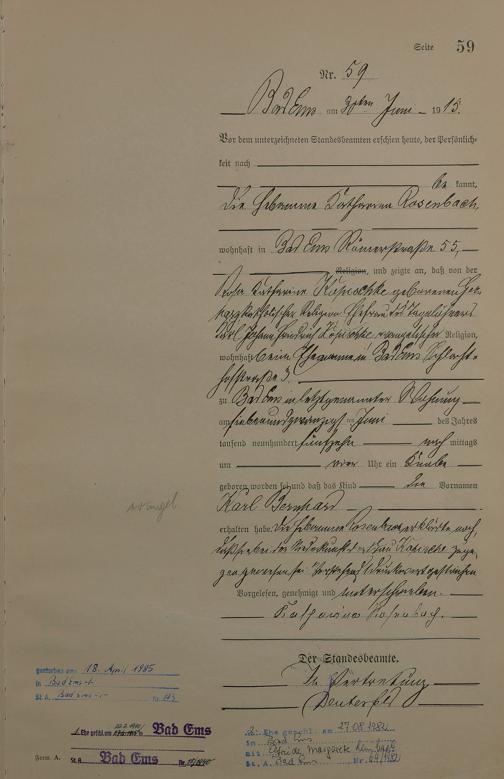 Seite 59
Nr. 59
Bad Ems am 30ten Juni 1915.
Vor dem unterzeichneten Standesbeamten erschien heute, der Persönlich-
keit nach
be kannt,
die Hebamme Katharina Rosenbach,
wohnhaft in Bad Ems Römerstraße 55,
Religion, und zeigte an, daß von der
Katharine geborenen
katholischer Religion Ehefrau des Tagelöhners
Karl evangelischer Religion,
wohnhaft beim Ehemanne in Bad Ems Schlacht-
hofstraße 3.
zu Bad Ems in letztgenannter Wohnung
am siebenundzwanzigsten Juni des Jahres
tausend neunhundert fünfzehn nach mittags
um vier Uhr ein Knabe
geboren worden sei und daß das Kind die Vornamen
Karl Bernhard
erhalten habe. Die Hebamme Rosenbach erklärte noch,
daß sie bei der Niederkunft der Frau zuge-
gen gewesen sei. Vorstehend Druckwort gestrichen
Vorgelesen, genehmigt und unterschrieben.
Katharina Rosenbach.
Der Standesbeamte.
In Vertretung
evangel
gestorben am: 18. April 1985
in Bad Ems
St. A. Bad Ems Nr.
1. Ehe geschl. am Bad Ems
Form A. St. A. Bad Ems Nr.
2. Ehe geschl. am 27.08.1982
in Bad Ems
mit Margarete
St. A. Bad Ems Nr.